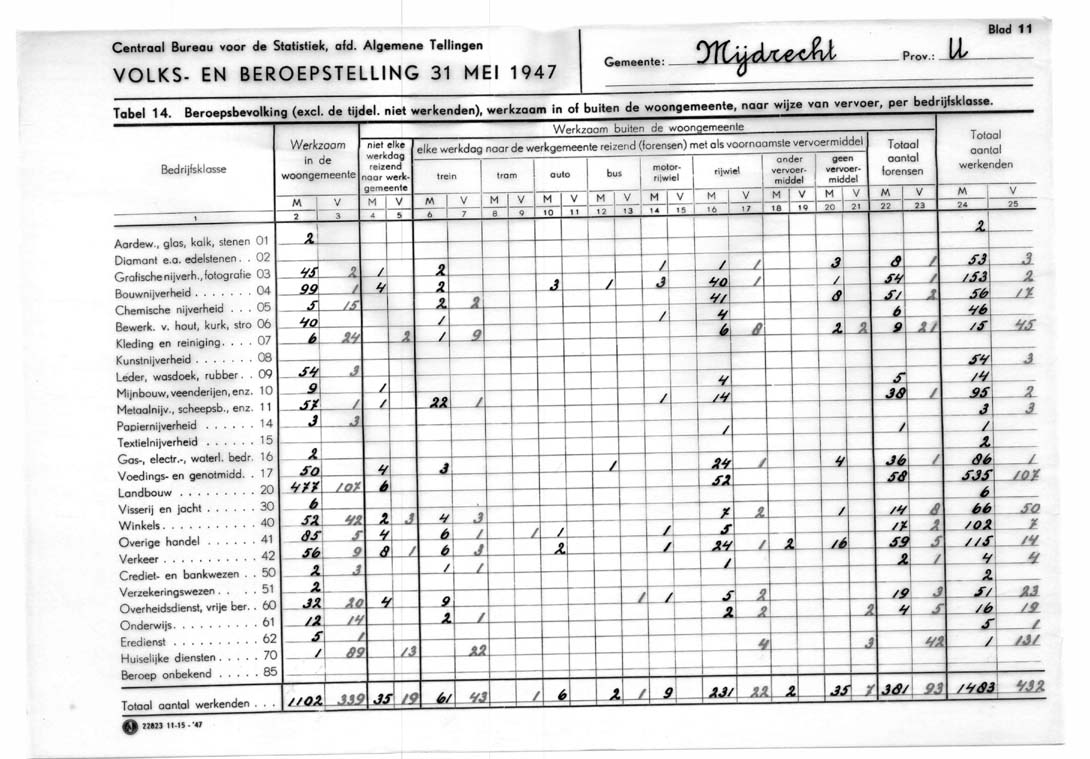 Blad 11
Centraal Bureau voor de Statistiek, afd. Algemene Tellingen
VOLKS- EN BEROEPSTELLING 31 MEI 1947
Gemeente: Mijdrecht Prov.: U
Tabel 14. Beroepsbevolking (excl. de tijdel. niet werkenden), werkzaam in of buiten de woongemeente, naar wijze van vervoer, per bedrijfsklasse.
Bedrijfsklasse
Werkzaam in de woongemeente
Werkzaam buiten de woongemeente
niet elke werkdag reizend naar werkgemeente
elke werkdag naar de werkgemeente reizend (forensen) met als voornaamste vervoermiddel
trein tram auto bus motor-rijwiel rijwiel ander vervoer-middel geen vervoer-middel
Totaal aantal forensen
Totaal aantal werkenden
M V M V M V M V M V M V M V M V M V M V M V M V
1 2 3 4 5 6 7 8 9 10 11 12 13 14 15 16 17 18 19 20 21 22 23 24 25
Aardew., glas, kalk, stenen 01 2 2
Diamant e.a. edelstenen . . 02
Grafische nijverh., fotografie 03 45 2 1 2 1 1 1 3 8 1 53 3
Bouwnijverheid . . . . . . . 04 99 1 4 2 3 1 3 40 1 1 54 1 153 2
Chemische nijverheid . . . 05 5 15 2 2 41 8 51 2 56 17
Bewerk. v. hout, kurk, stro 06 40 1 1 4 6 46
Kleding en reiniging. . . . 07 6 24 2 1 9 6 8 2 2 9 21 15 45
Kunstnijverheid . . . . . . . 08
Leder, wasdoek, rubber . . 09 54 3 54 3
Mijnbouw, veenderijen, enz. 10 9 1 4 5 14
Metaalnijv., scheepsb., enz. 11 57 1 1 22 1 1 14 38 1 95 2
Papiernijverheid . . . . . . 14 3 3 3 3
Textielnijverheid . . . . . . 15 1 1 1
Gas-, electr.-, waterl. bedr. 16 2 2
Voedings- en genotmidd. . 17 50 4 3 1 24 1 4 36 1 86 1
Landbouw . . . . . . . . . 20 477 107 6 52 58 535 107
Visserij en jacht . . . . . . 30 6 6
Winkels . . . . . . . . . . . 40 52 42 2 3 4 3 7 2 1 14 8 66 50
Overige handel . . . . . . 41 85 5 4 6 1 1 1 1 5 17 2 102 7
Verkeer . . . . . . . . . . . 42 56 9 8 1 6 3 2 1 24 1 2 16 59 5 115 14
Crediet- en bankwezen . . 50 2 3 1 1 1 2 1 4 4
Verzekeringswezen . . . . 51 2 2
Overheidsdienst, vrije ber. . 60 32 20 4 9 1 1 5 2 19 3 51 23
Onderwijs. . . . . . . . . . 61 12 14 2 1 2 2 2 4 5 16 19
Eredienst . . . . . . . . . . 62 5 1 5 1
Huiselijke diensten . . . . . 70 1 89 13 22 4 3 42 1 131
Beroep onbekend . . . . . 85
Totaal aantal werkenden . . . 1102 339 35 19 61 43 1 6 2 1 9 231 22 2 35 7 381 93 1483 432
22823 11-15 - '47